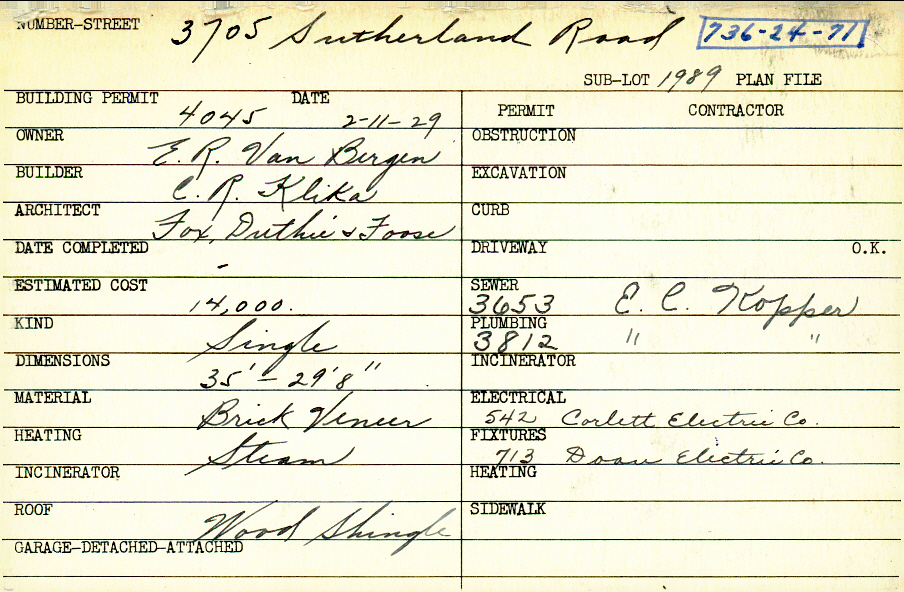 NUMBER-STREET 3705 Sutherland Road 736-24-71
SUB-LOT 1989 PLAN FILE
BUILDING PERMIT 4045 DATE 2-11-29
OWNER E. R. Van Bergen
BUILDER C. R. Klika
ARCHITECT Fox, Duthie & Foose
DATE COMPLETED -
ESTIMATED COST 14,000.
KIND Single
DIMENSIONS 35' - 29'8"
MATERIAL Brick Veneer
HEATING Steam
INCINERATOR
ROOF Wood Shingle
GARAGE-DETACHED-ATTACHED
PERMIT CONTRACTOR
OBSTRUCTION
EXCAVATION
CURB
DRIVEWAY O.K.
SEWER 3653 E. C. Kopper
PLUMBING 3812 " "
INCINERATOR
ELECTRICAL 542 Corlett Electric Co.
FIXTURES 713 Doan Electric Co.
HEATING
SIDEWALK